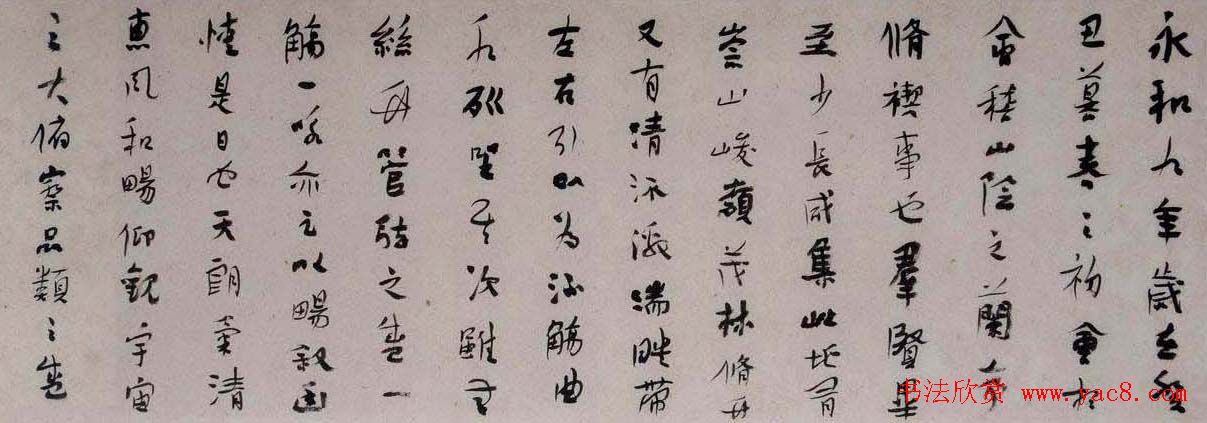 永和九年歲在癸
丑暮春之初會於
會稽山陰之蘭亭
脩禊事也羣賢畢
至少長咸集此地有
崇山峻嶺茂林脩竹
又有清流激湍映帶
左右引以為流觴曲
水列坐其次雖無
絲竹管弦之盛一
觴一咏亦足以暢敘幽
情是日也天朗氣清
惠風和暢仰觀宇宙
之大俯察品類之盛
书法欣赏 www.yac8.com